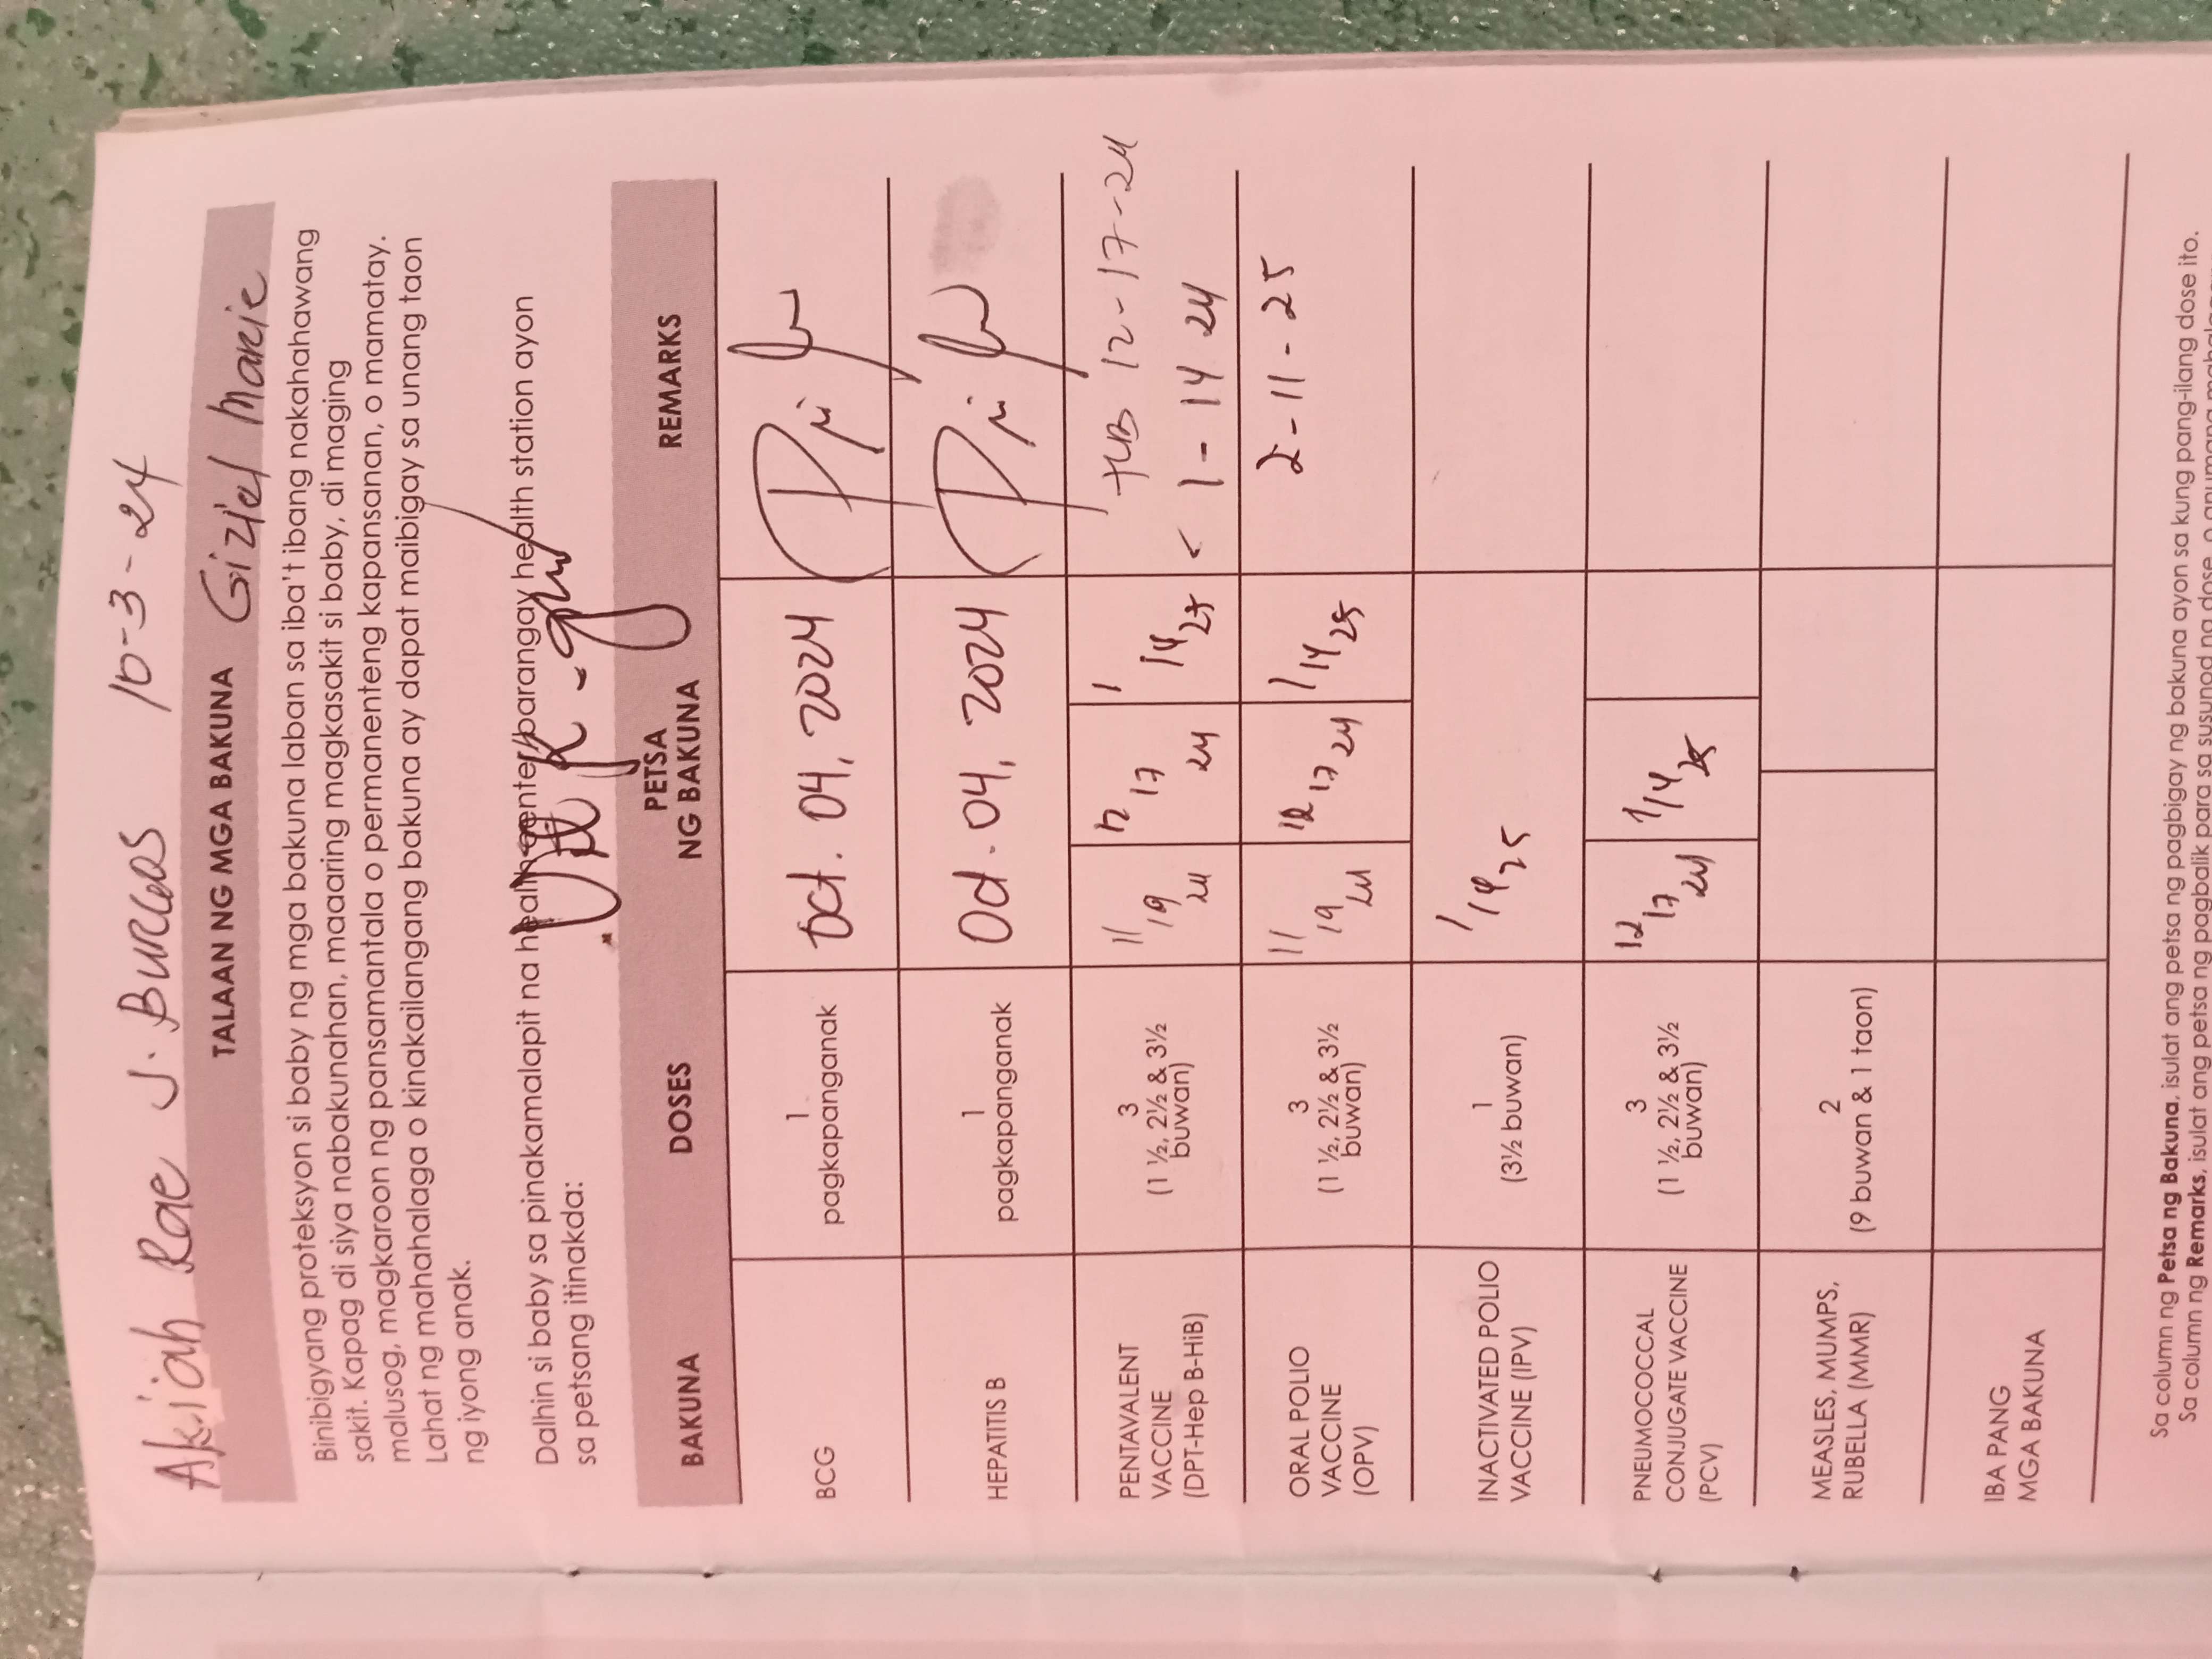 Akiah Rae J. Burcaos 10-3-24
TALAAN NG MGA BAKUNA Giziel Marie
Binibigyang proteksyon si baby ng mga bakuna laban sa iba't ibang nakahahawang
sakit. Kapag di siya nabakunahan, maaaring magkasakit si baby, di maging
malusog, magkaroon ng pansamantala o permanenteng kapansanan, o mamatay.
Lahat ng mahahalaga o kinakailangang bakuna ay dapat maibigay sa unang taon
ng iyong anak.
Dalhin si baby sa pinakamalapit na health center/barangay health station ayon
sa petsang itinakda:
BAKUNA DOSES PETSA NG BAKUNA REMARKS
BCG 1 pagkapanganak Oct. 04, 2024
HEPATITIS B 1 pagkapanganak Oct. 04, 2024
PENTAVALENT VACCINE (DPT-Hep B-HiB) 3 (1 ½, 2½ & 3½ buwan) 11/19 24 12 17 24 1 14 25 12-17-24
< 1-14 24
ORAL POLIO VACCINE (OPV) 3 (1 ½, 2½ & 3½ buwan) 11 19 24 12 17 24 1 14 25 2-11-25
INACTIVATED POLIO VACCINE (IPV) 1 (3½ buwan) 1 14 25
PNEUMOCOCCAL CONJUGATE VACCINE (PCV) 3 (1 ½, 2½ & 3½ buwan) 12 17 24 1/14 25
MEASLES, MUMPS, RUBELLA (MMR) 2 (9 buwan & 1 taon)
IBA PANG MGA BAKUNA
Sa column ng Petsa ng Bakuna, isulat ang petsa ng pagbigay ng bakuna ayon sa kung pang-ilang dose ito.
Sa column ng Remarks, isulat ang petsa ng pagbalik para sa susunod na dose,